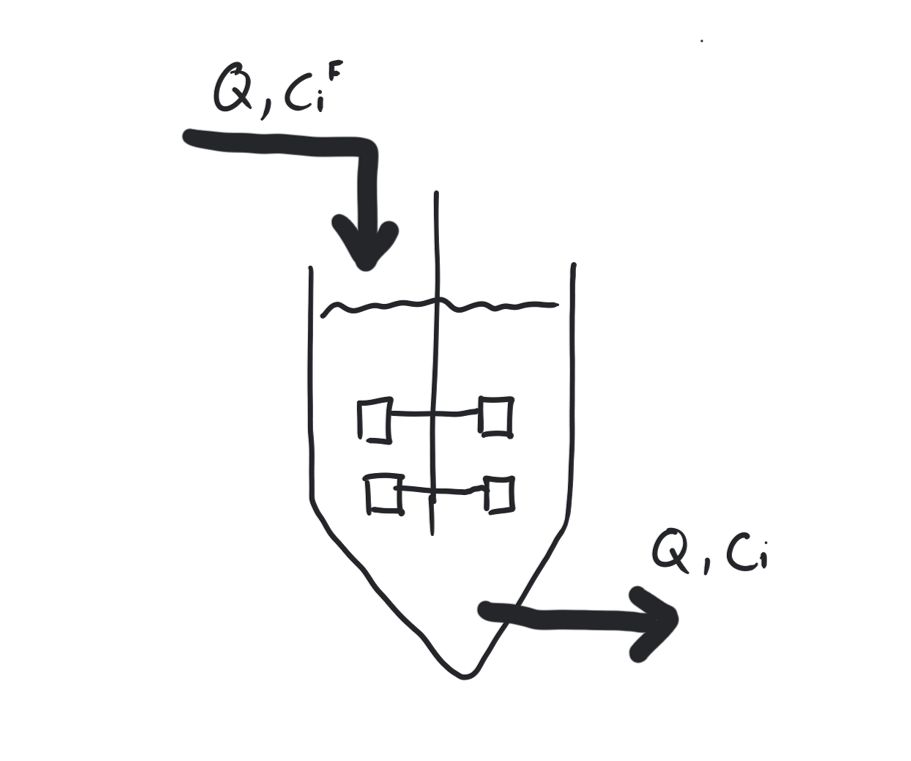 Q, Ciᶠ
Q, Ci